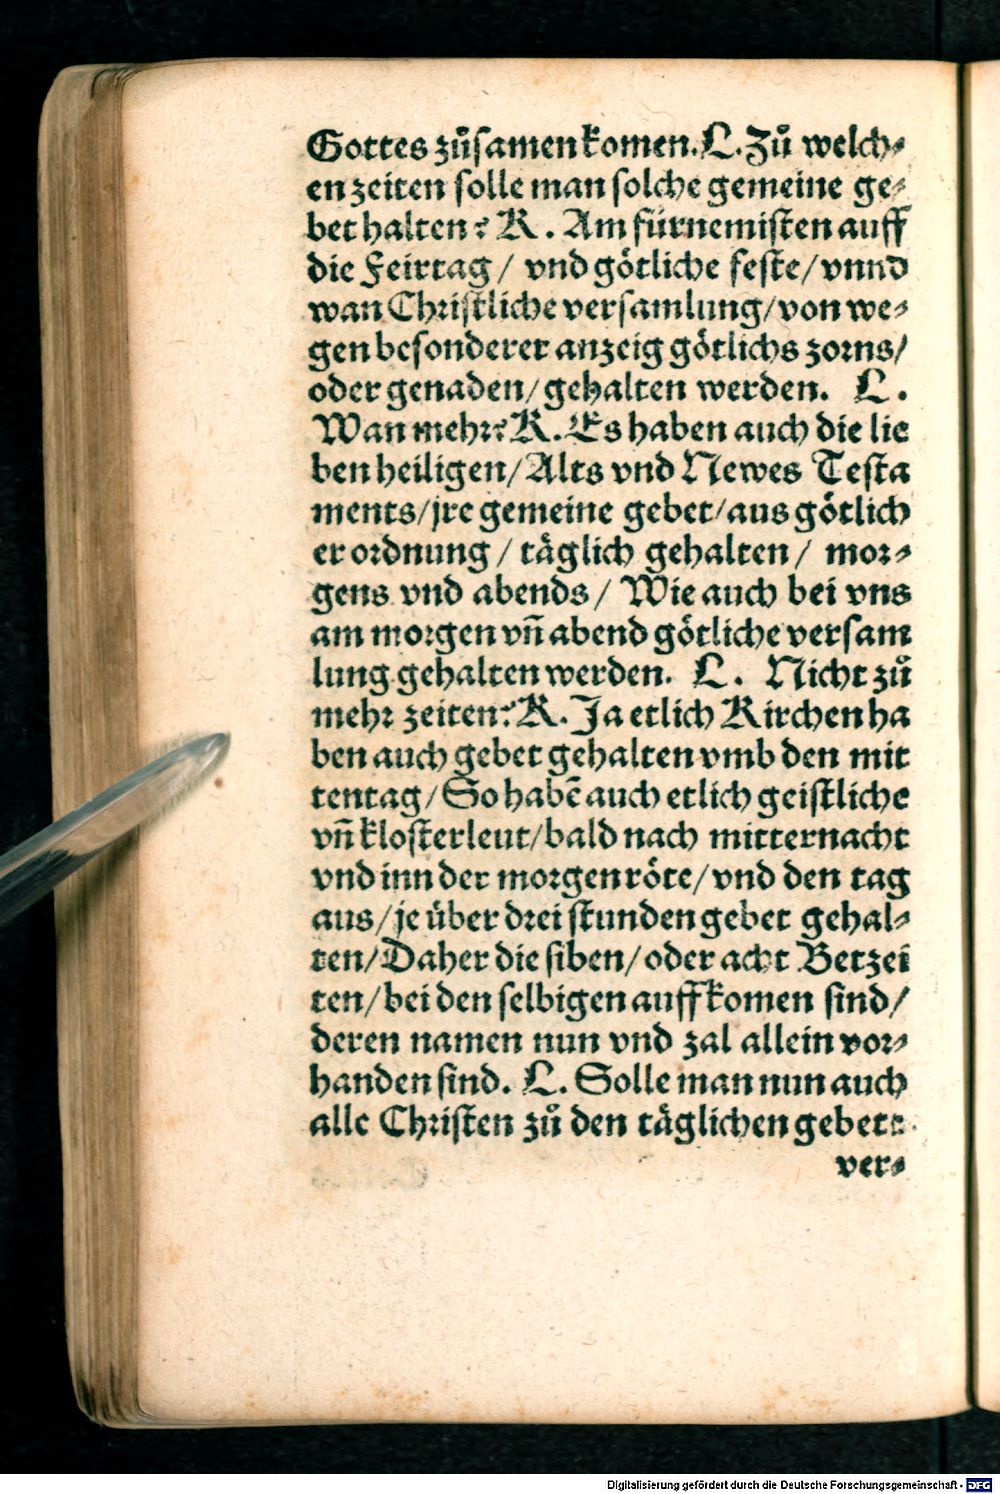 Gottes zůsamen komen. L. Zů welch⸗
en zeiten solle man solche gemeine ge⸗
bet halten? K. Am fürnemisten auff
die Feirtag / vnd götliche feste / vnnd
wan Christliche versamlung / von we⸗
gen besonderer anzeig götlichs zorns /
oder genaden / gehalten werden. L.
Wan mehr? K. Es haben auch die lie
ben heiligen / Alts vnd Newes Testa
ments / jre gemeine gebet / aus götlich
er ordnung / täglich gehalten / mor⸗
gens vnd abends / Wie auch bei vns
am morgen vñ abend götliche versam
lung gehalten werden. L. Nicht zů
mehr zeiten? K. Ja etlich Kirchen ha
ben auch gebet gehalten vmb den mit
tentag / So habē auch etlich geistliche
vñ klosterleut / bald nach mitternacht
vnd inn der morgenröte / vnd den tag
aus / je über drei stunden gebet gehal⸗
ten / Daher die siben / oder acht Betzei
ten / bei den selbigen auffkomen sind /
deren namen nun vnd zal allein vor⸗
handen sind. L. Solle man nun auch
alle Christen zů den täglichen gebete
ver⸗
Digitalisierung gefördert durch die Deutsche Forschungsgemeinschaft - DFG